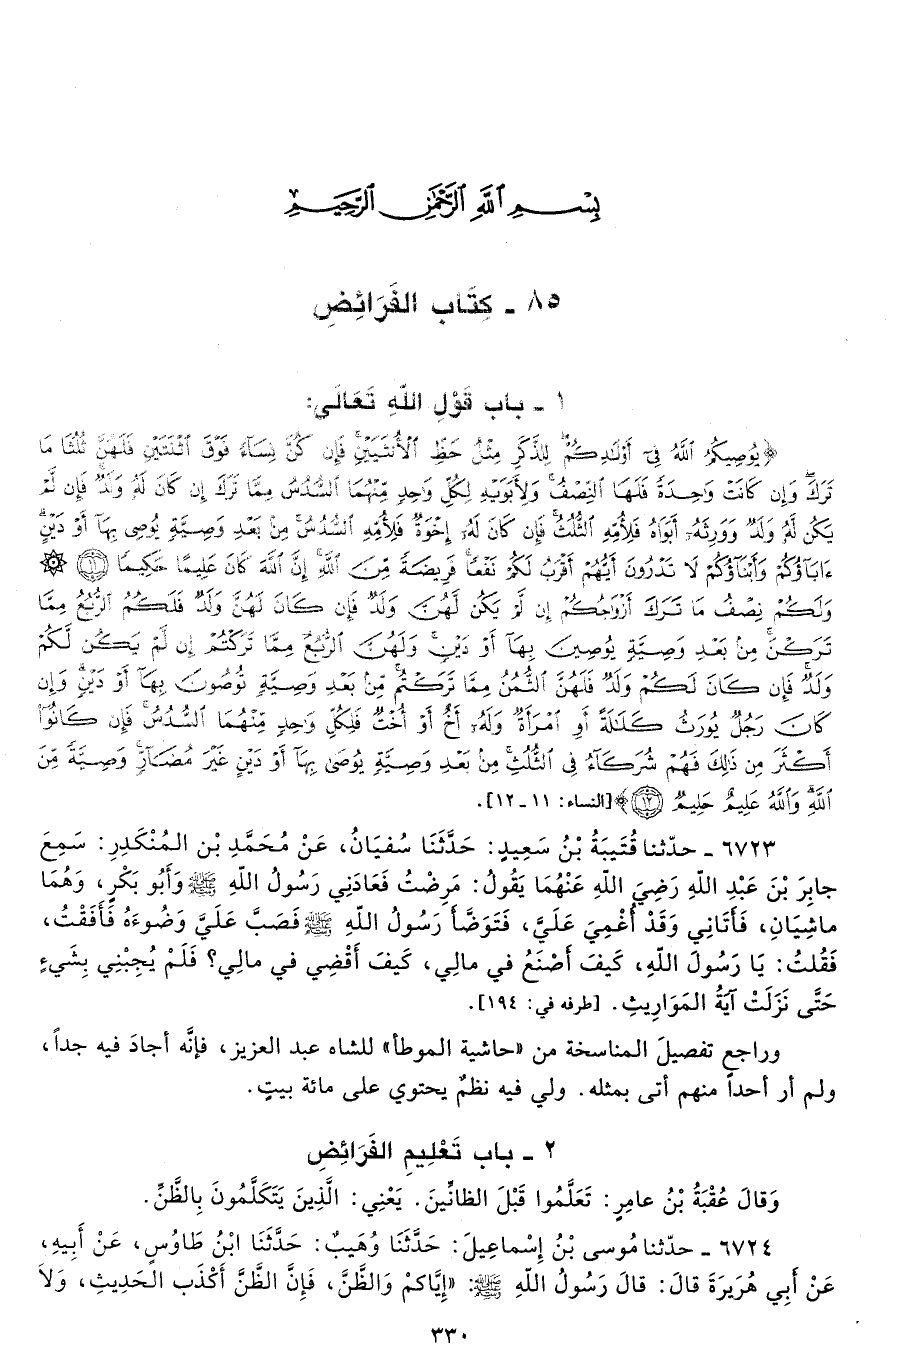 بِسْمِ اللَّهِ الرَّحْمَنِ الرَّحِيمِ
٨٥ - كِتَاب الفَرَائِضِ
١ - باب قَوْلِ اللّهِ تَعَالَى:
﴿يُوصِيكُمُ اللَّهُ فِي أَوْلَادِكُمْ لِلذَّكَرِ مِثْلُ حَظِّ الْأُنثَيَيْنِ فَإِن كُنَّ نِسَاءً فَوْقَ اثْنَتَيْنِ فَلَهُنَّ ثُلُثَا مَا
تَرَكَ وَإِن كَانَتْ وَاحِدَةً فَلَهَا النِّصْفُ وَلِأَبَوَيْهِ لِكُلِّ وَاحِدٍ مِّنْهُمَا السُّدُسُ مِمَّا تَرَكَ إِن كَانَ لَهُ وَلَدٌ فَإِن لَّمْ
يَكُن لَّهُ وَلَدٌ وَوَرِثَهُ أَبَوَاهُ فَلِأُمِّهِ الثُّلُثُ فَإِن كَانَ لَهُ إِخْوَةٌ فَلِأُمِّهِ السُّدُسُ مِنْ بَعْدِ وَصِيَّةٍ يُوصِي بِهَا أَوْ دَيْنٍ
ءَابَاؤُكُمْ وَأَبْنَاؤُكُمْ لَا تَدْرُونَ أَيُّهُمْ أَقْرَبُ لَكُمْ نَفْعًا فَرِيضَةً مِّنَ اللَّهِ إِنَّ اللَّهَ كَانَ عَلِيمًا حَكِيمًا ﴿١١﴾ ۞
وَلَكُمْ نِصْفُ مَا تَرَكَ أَزْوَاجُكُمْ إِن لَّمْ يَكُن لَّهُنَّ وَلَدٌ فَإِن كَانَ لَهُنَّ وَلَدٌ فَلَكُمُ الرُّبُعُ مِمَّا
تَرَكْنَ مِنْ بَعْدِ وَصِيَّةٍ يُوصِينَ بِهَا أَوْ دَيْنٍ وَلَهُنَّ الرُّبُعُ مِمَّا تَرَكْتُمْ إِن لَّمْ يَكُن لَّكُمْ
وَلَدٌ فَإِن كَانَ لَكُمْ وَلَدٌ فَلَهُنَّ الثُّمُنُ مِمَّا تَرَكْتُم مِّنْ بَعْدِ وَصِيَّةٍ تُوصُونَ بِهَا أَوْ دَيْنٍ وَإِن
كَانَ رَجُلٌ يُورَثُ كَلَالَةً أَوِ امْرَأَةٌ وَلَهُ أَخٌ أَوْ أُخْتٌ فَلِكُلِّ وَاحِدٍ مِّنْهُمَا السُّدُسُ فَإِن كَانُوا
أَكْثَرَ مِن ذَلِكَ فَهُمْ شُرَكَاءُ فِي الثُّلُثِ مِنْ بَعْدِ وَصِيَّةٍ يُوصَى بِهَا أَوْ دَيْنٍ غَيْرَ مُضَارٍّ وَصِيَّةً مِّنَ
اللَّهِ وَاللَّهُ عَلِيمٌ حَلِيمٌ ﴿١٢﴾﴾ [النساء: ١١ - ١٢].
٦٧٢٣ - حدّثنا قُتَيبَةُ بْنُ سَعِيدٍ: حَدَّثَنَا سُفيَانُ، عَنْ مُحَمَّدِ بْنِ المُنْكَدِرِ: سَمِعَ
جابِرَ بْنَ عَبْدِ اللّهِ رَضِيَ اللّهِ عَنْهُمَا يَقُولُ: مَرِضْتُ فَعَادَنِي رَسُولُ اللّهِ ﷺ وَأَبُو بَكْرٍ، وَهُمَا
ماشِيَانِ، فَأَتَانِي وَقَدْ أُغْمِيَ عَلَيَّ، فَتَوَضَّأَ رَسُولُ اللّهِ ﷺ فَصَبَّ عَلَيَّ وَضُوءَهُ فَأَفَقْتُ،
فَقُلتُ: يَا رَسُولَ اللّهِ، كَيفَ أَصْنَعُ في مالِي، كَيفَ أَقْضِي في مالِي؟ فَلَمْ يُجِبْنِي بِشَيءٍ
حَتَّى نَزَلَتْ آيَةُ المَوَارِيثِ. [طرفه في: ١٩٤].
وراجع تفصيلَ المناسخة من «حاشية الموطأ» للشاه عبد العزيز، فإنَّه أجادَ فيه جداً،
ولم أر أحداً منهم أتى بمثله. ولي فيه نظمٌ يحتوي على مائة بيتٍ.
٢ - باب تَعْلِيمِ الفَرَائِضِ
وَقالَ عُقْبَةُ بْنُ عامِرٍ: تَعَلَّمُوا قَبْلَ الظانِّينَ. يَعْنِي: الَّذِينَ يَتَكَلَّمُونَ بِالظَّنِّ.
٦٧٢٤ - حدّثنا مُوسى بْنُ إِسْماعِيلَ: حَدَّثَنَا وُهَيبٌ: حَدَّثَنَا ابْنُ طَاوُسٍ، عَنْ أَبِيهِ،
عَنْ أَبِي هُرَيرَةَ قالَ: قالَ رَسُولُ اللّهِ ﷺ: «إِيَّاكمْ وَالظَّنَّ، فَإِنَّ الظَّنَّ أَكْذَب الحَدِيثِ، وَلاَ
٣٣٠